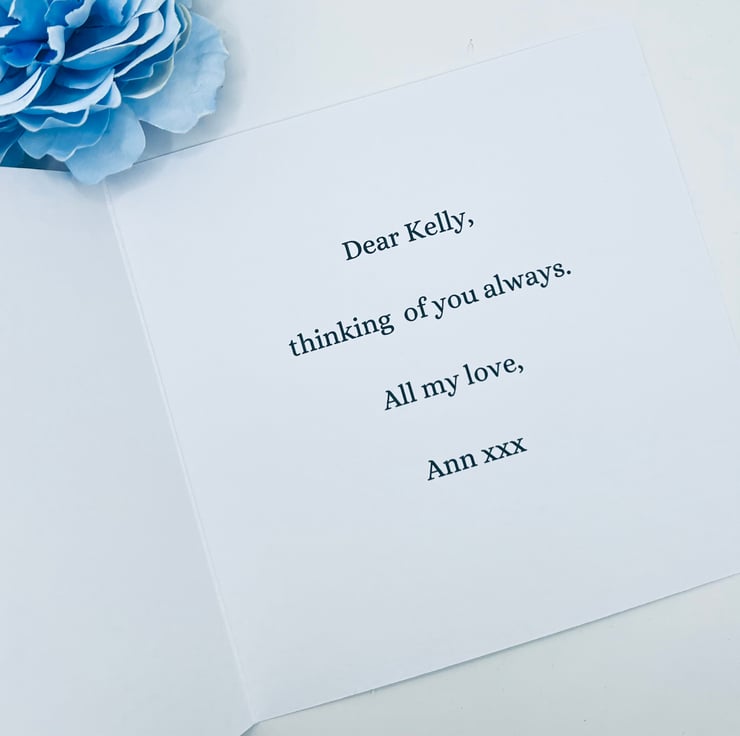 Dear Kelly,
thinking  of you always.
All my love,
Ann xxx